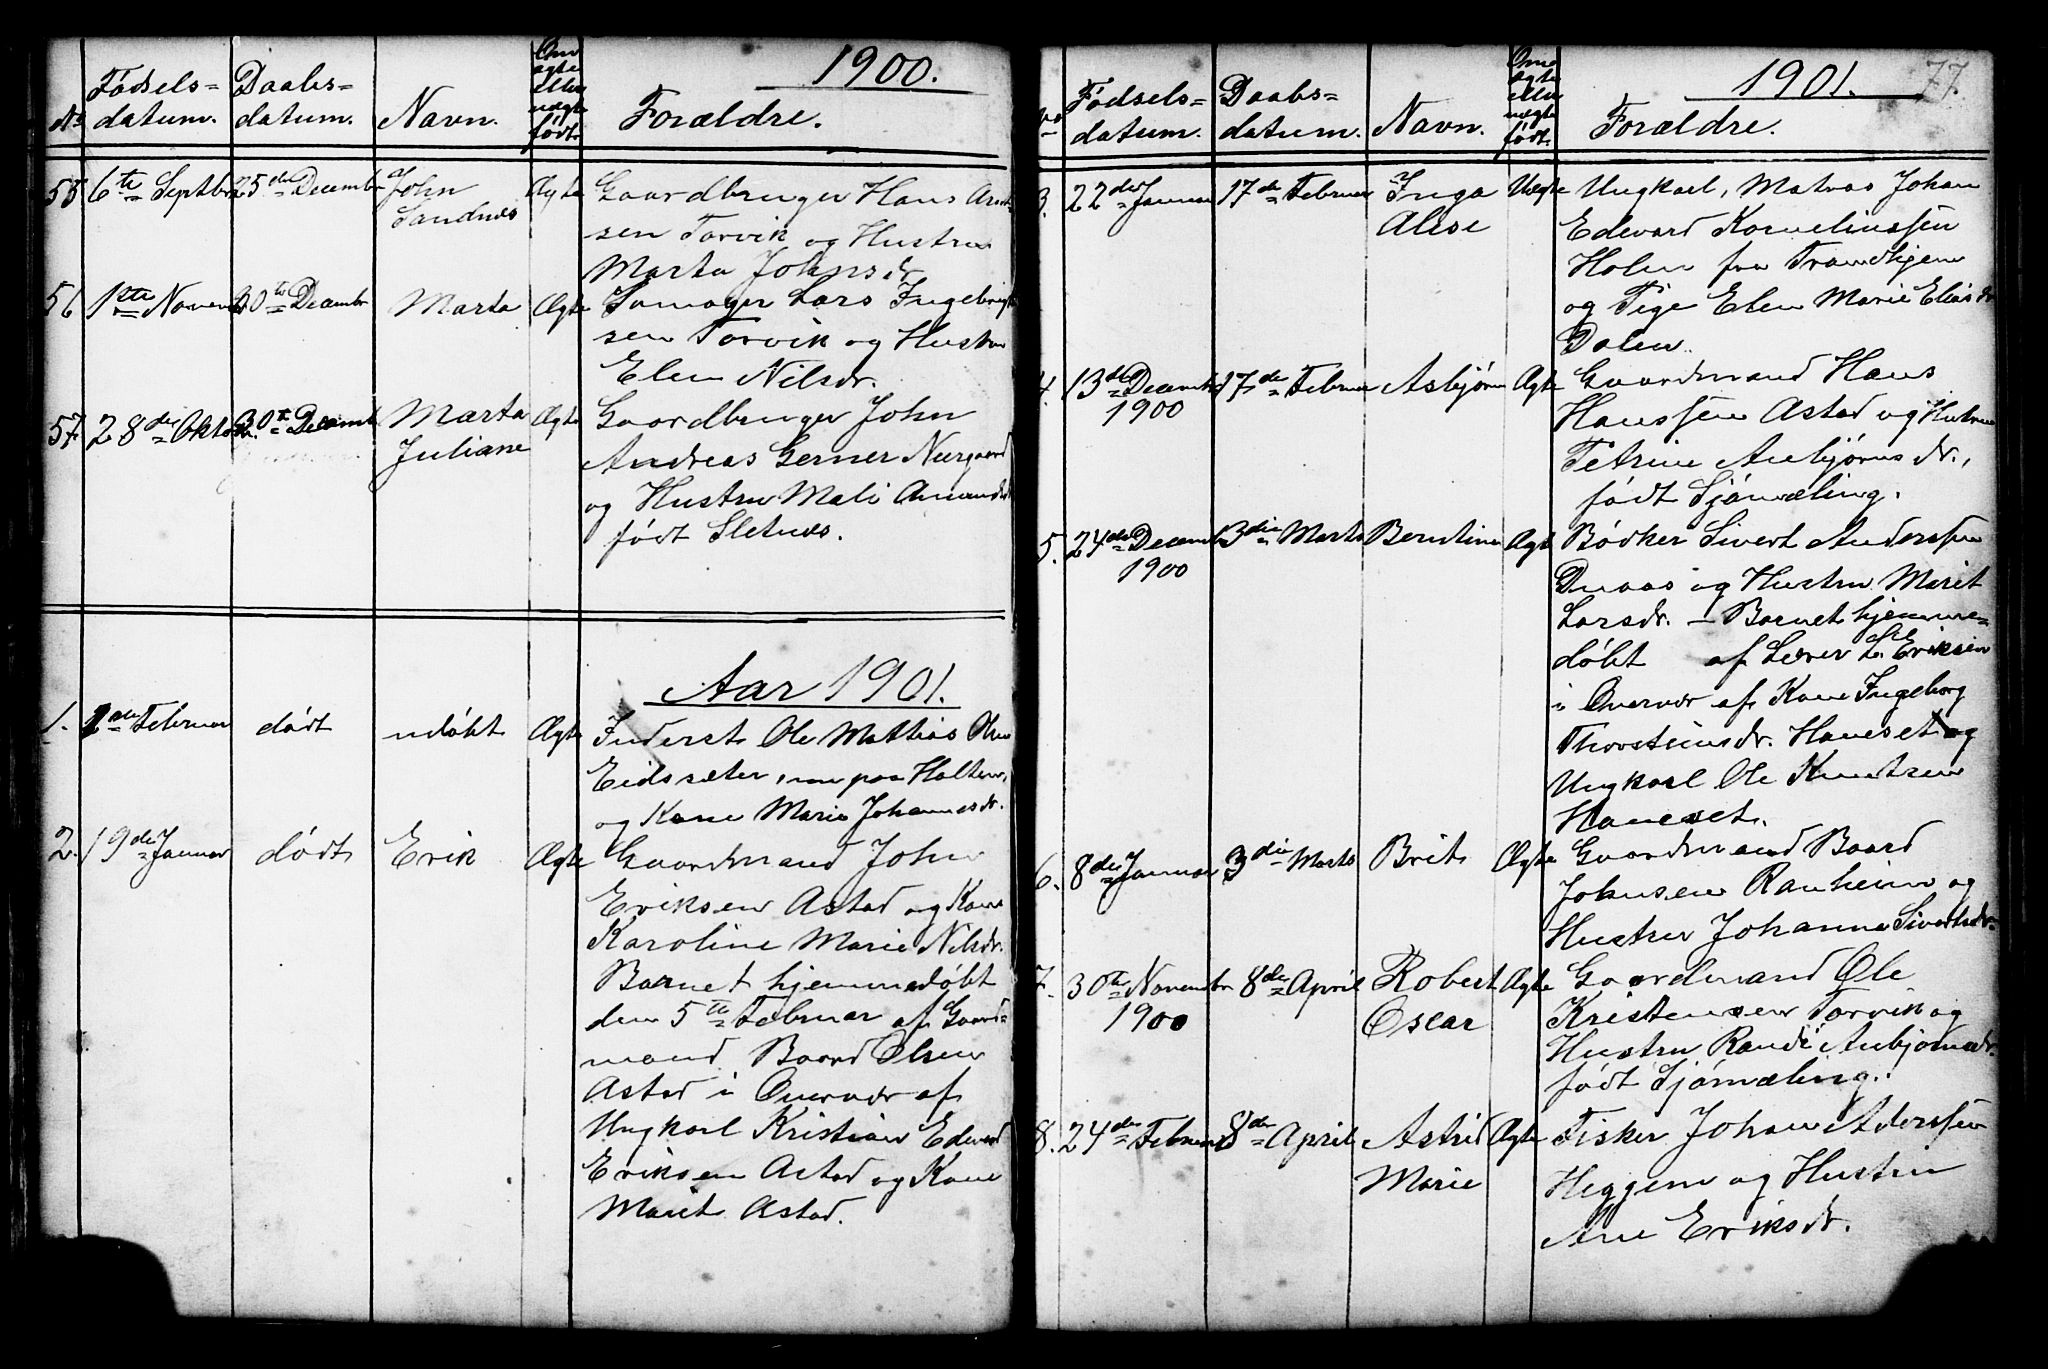 1900.
No
Fødsels=
datum.
Daabs=
datum.
Navn.
Om
ægte
eller
uægte
født.
Forældre.
55 6te Septbr 25de Decembr John Sandnes Ægte Gaardbruger Hans Arnt-
sen Torvik og Hustru
Marta Johnsdr.
56 1ste Novem 30te Decembr Marta Ægte Lars Ingebrigt
sen Torvik og Hustru
Elen Nilsdr.
57. 28de Oktobr. 30te Decemb Marta Juliane Ægte Gaardbruger John
Andreas Gerner Neergaard
og Hustru Mali Amundsdr
født Sletnes.
Aar 1901.
1. Februar dødt udøbt Ægte Inderst Ole Mattias Olsen
Eidssæter, nu paa Holten,
og Kone Marie Johannesdr.
2. 19de Januar dødt Erik Ægte Gaardmand John
Eriksen Astad og Kone
Karoline Marie Nilsdr.
Barnet hjemmedøbt
den 5te Februar af Gaard=
mand Baard Olsen
Astad i Overvær af
Ungkarl Kristian Edvard
Eriksen Astad og Kone
Marit Astad.
1901.
77.
No
Fødsels=
datum.
Daabs=
datum.
Navn.
Om
ægte
eller
uægte
født.
Forældre.
3. 22de Januar 17de Februar Inga Alise Uægte Ungkarl, Johan
Edevard Korneliussen
Holen fra Trondhjem
og Pige Elen Marie Eliasdr
Dalen.
4. 13de Decembr 1900 17de Februar Asbjørn Ægte Gaardmand Hans
Hanssen Astad og Hustru
Petrine Anbjørnsdr.,
født Sjømæling.
5. 24de Decembr 1900 3die Marts Berntine Ægte Bødker Sivert Anderssen
og Hustru Marit
Larsdr. – Barnet hjemme=
døbt af Lærer L. E. Eriksen
i Overvær af Kone Ingeborg
Thorsteinsdr. Haneset og
Ungkarl Ole Knutsen
Haneset.
6. 8de Januar 3die Marts Brit Ægte Gaardmand Baard
Johnsen Ranheim og
Hustru Johanna Sivertsdr.
7. 30te Novembr 1900 8de April Robert Oscar Ægte Gaardmand Ole
Kristensen Torvik og
Hustru Randi Anbjørnsdr.
født Sjømæling.
8. 24de Februar 8de April Astrid Marie Ægte Fisker Johan Aderssen
Heggem og Hustru
Ane Eriksdr.